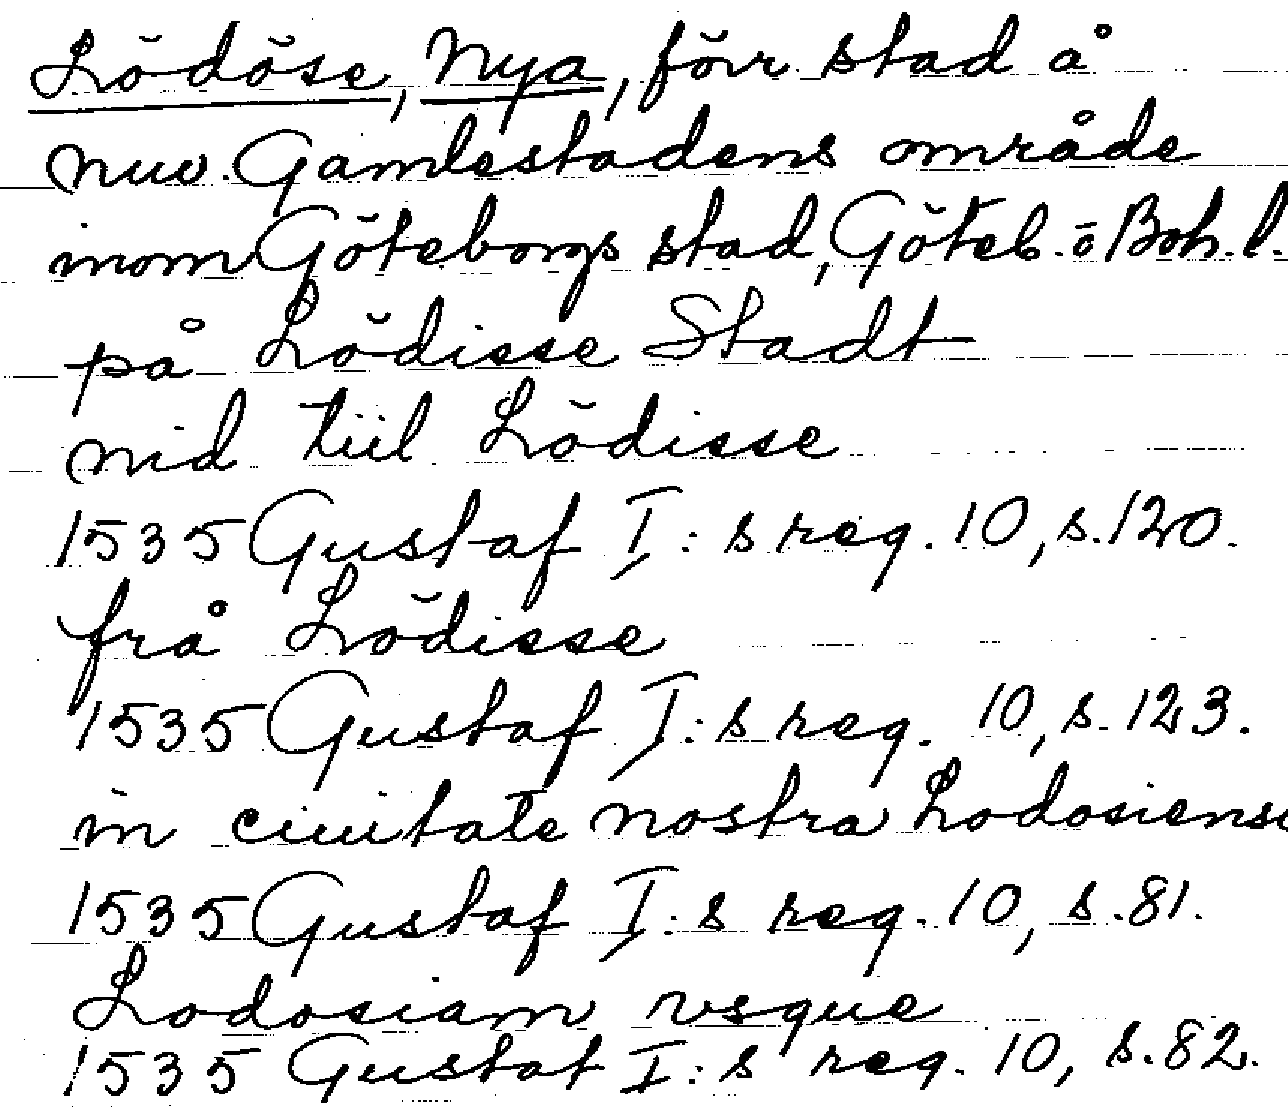 Lödöse, Nya, förr stad å
nuv. Gamlestadens område
inom Göteborgs stad, Göteb. o Boh. l.
på Lödisse Stadt
nid tiil Lödisse
1535 Gustaf I:s reg. 10, s. 120.
frå Lödisse
1535 Gustaf I:s reg. 10, s. 123.
in ciuitate nostra Lodosiensi
1535 Gustaf I:s reg. 10, s. 81.
Lodosiam vsque
1535 Gustaf I:s reg. 10, s. 82.